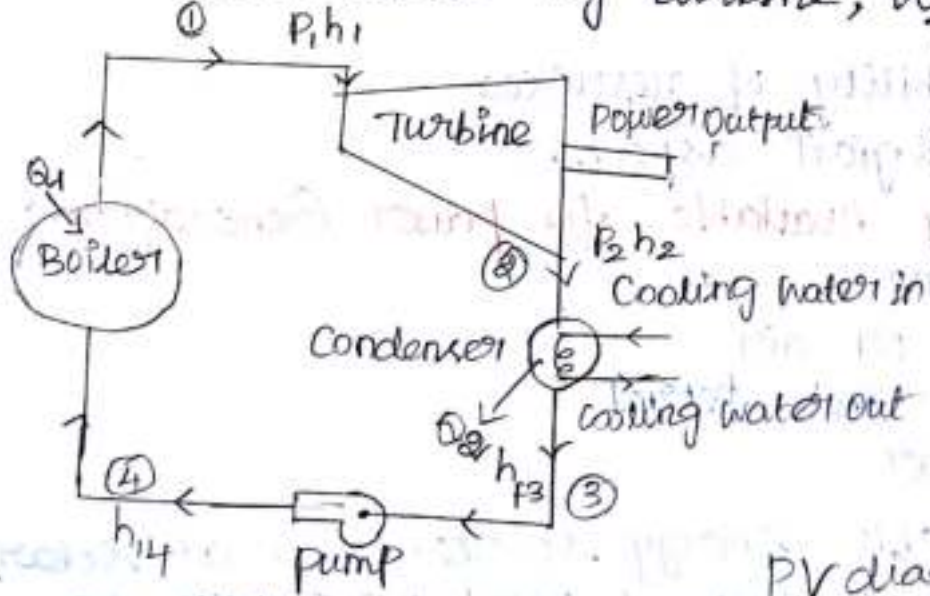 turbine,
① P₁h₁
Turbine
Power output
Q₁
Boiler
② P₂h₂
Cooling water in
Condenser
Cooling water out
Q₂
hf3 ③
④
hf4
pump
PV dia